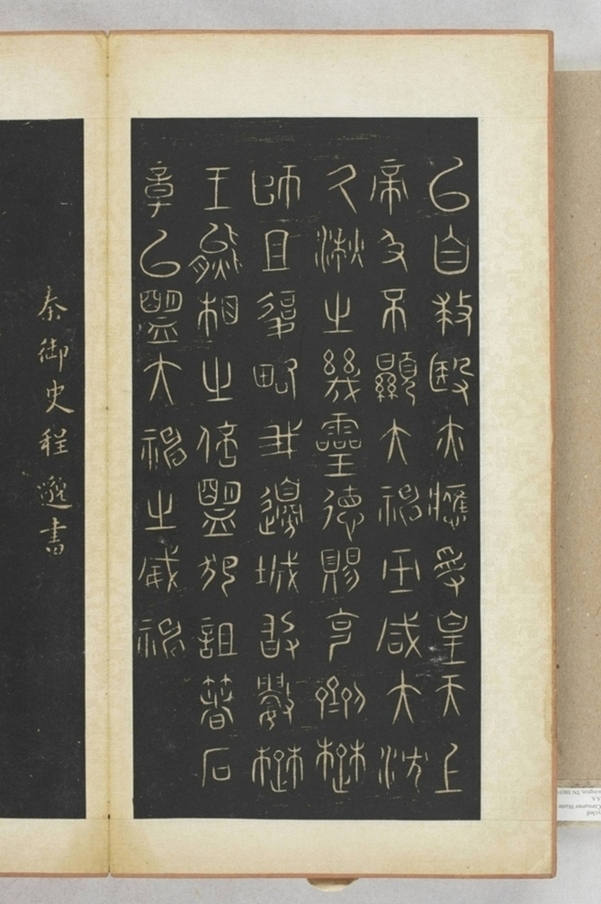 㠯自救殹亦應受皇天上
帝及不顯大神巫咸大沈
久湫之幾靈德賜克劑楚
師且復略我邊城敢數楚
王熊相之倍盟犯詛箸石
章㠯盟大神之威神
秦御史程邈書
Consumer Waste